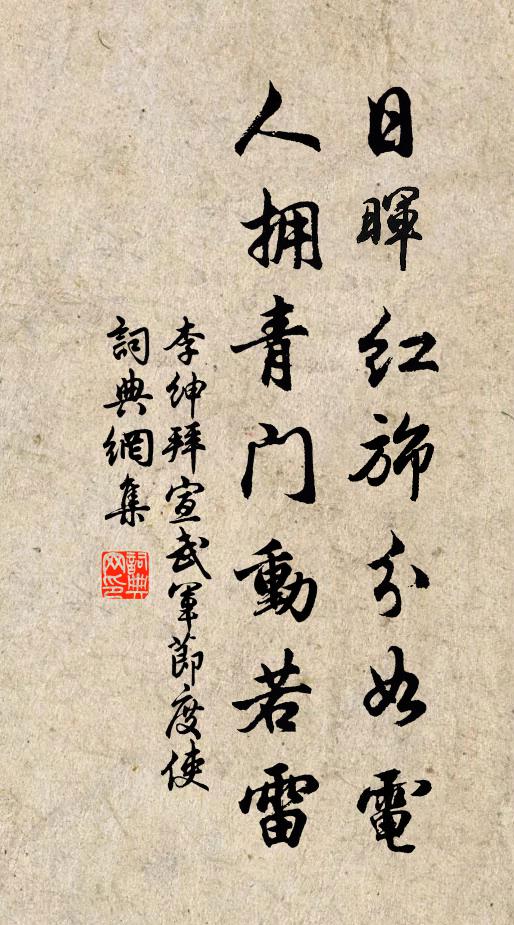 日暉紅旆分如電
人拥青门動若雷
李紳拜宣武軍節度使
詞典網集
詞典网印